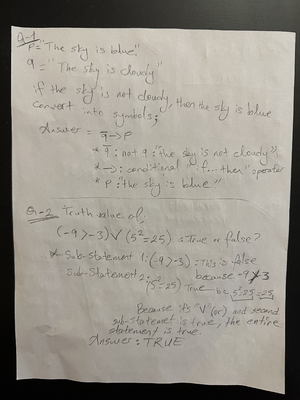 Q-1
P = "The sky is blue"
q = "The sky is cloudy"
if the sky is not cloudy, then the sky is blue
convert into symbols;
Answer = q̅ -> P
* q̅ : not q : "the sky is not cloudy"
* -> : conditional "if... then" operator
* P : "the sky is blue"
Q-2 Truth value of:
(-9 > -3) V (5² = 25) = True or false?
* Sub-statement 1: (-9 > -3) : This is false
because -9 ≯ 3
Sub-statement 2: (5² = 25) True b/c 5² = 25 = 25
Because it's "V" (or) and second
sub-statemet is true, the entire
statement is true.
Answer : TRUE